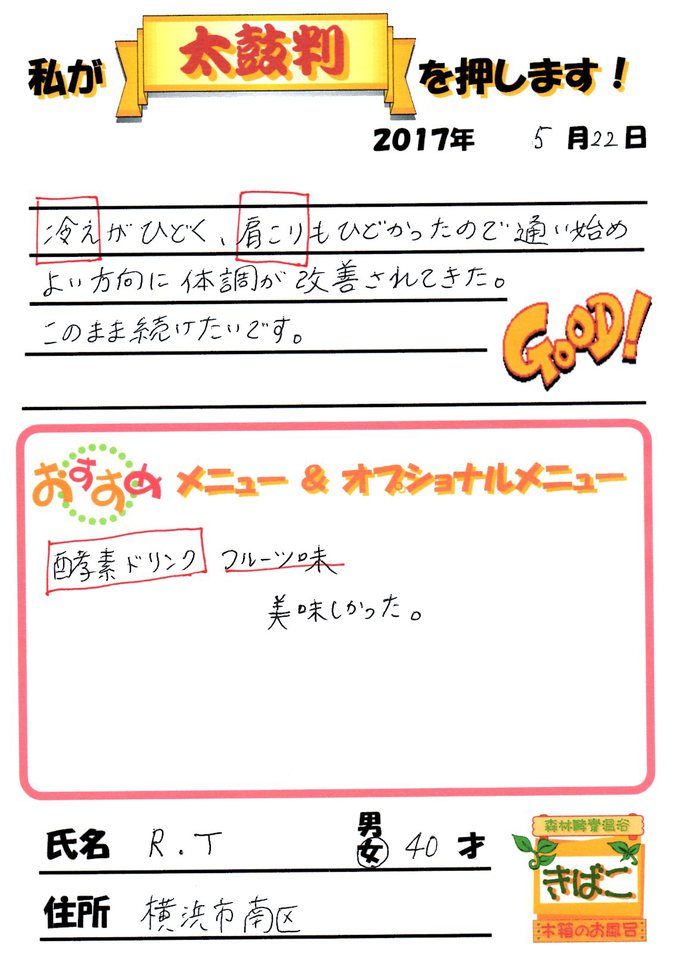 私が 太鼓判 を押します!
2017年 5月22日
冷えがひどく、肩こりもひどかったので通い始め
よい方向に体調が改善されてきた。
このまま続けたいです。
GOOD!
おすすめ メニュー & オプショナルメニュー
酵素ドリンク フルーツ味
美味しかった。
氏名 R.T 男 女 40才
住所 横浜市南区
森林酵素温浴
きばこ
木箱のお風呂